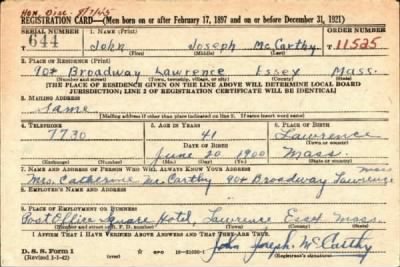 Hon. Disc.
REGISTRATION CARD—(Men born on or after February 17, 1897 and on or before December 31, 1921)
SERIAL NUMBER 1. NAME (Print) ORDER NUMBER
644 John Joseph McCarthy T 11525
(First) (Middle) (Last)
2. PLACE OF RESIDENCE (Print)
90A Broadway Lawrence Essex Mass.
(Number and street) (Town, township, village, or city) (County) (State)
[THE PLACE OF RESIDENCE GIVEN ON THE LINE ABOVE WILL DETERMINE LOCAL BOARD
JURISDICTION; LINE 2 OF REGISTRATION CERTIFICATE WILL BE IDENTICAL]
3. MAILING ADDRESS
Same
[Mailing address if other than place indicated on line 2. If same insert word same]
4. TELEPHONE 5. AGE IN YEARS 6. PLACE OF BIRTH
7730 41 Lawrence
DATE OF BIRTH (Town or county)
June 20 1900 Mass
(Exchange) (Number) (Mo.) (Day) (Yr.) (State or country)
7. NAME AND ADDRESS OF PERSON WHO WILL ALWAYS KNOW YOUR ADDRESS Mass
Mrs. Catherine McCarthy 90A Broadway Lawrence
8. EMPLOYER'S NAME AND ADDRESS
9. PLACE OF EMPLOYMENT OR BUSINESS
Post Office Square Hotel, Lawrence Essex Mass.
(Number and street or R. F. D. number) (Town) (County) (State)
I AFFIRM THAT I HAVE VERIFIED ABOVE ANSWERS AND THAT THEY ARE TRUE.
D. S. S. Form 1 John Joseph McCarthy
(Revised 1-1-42) (Registrant's signature)